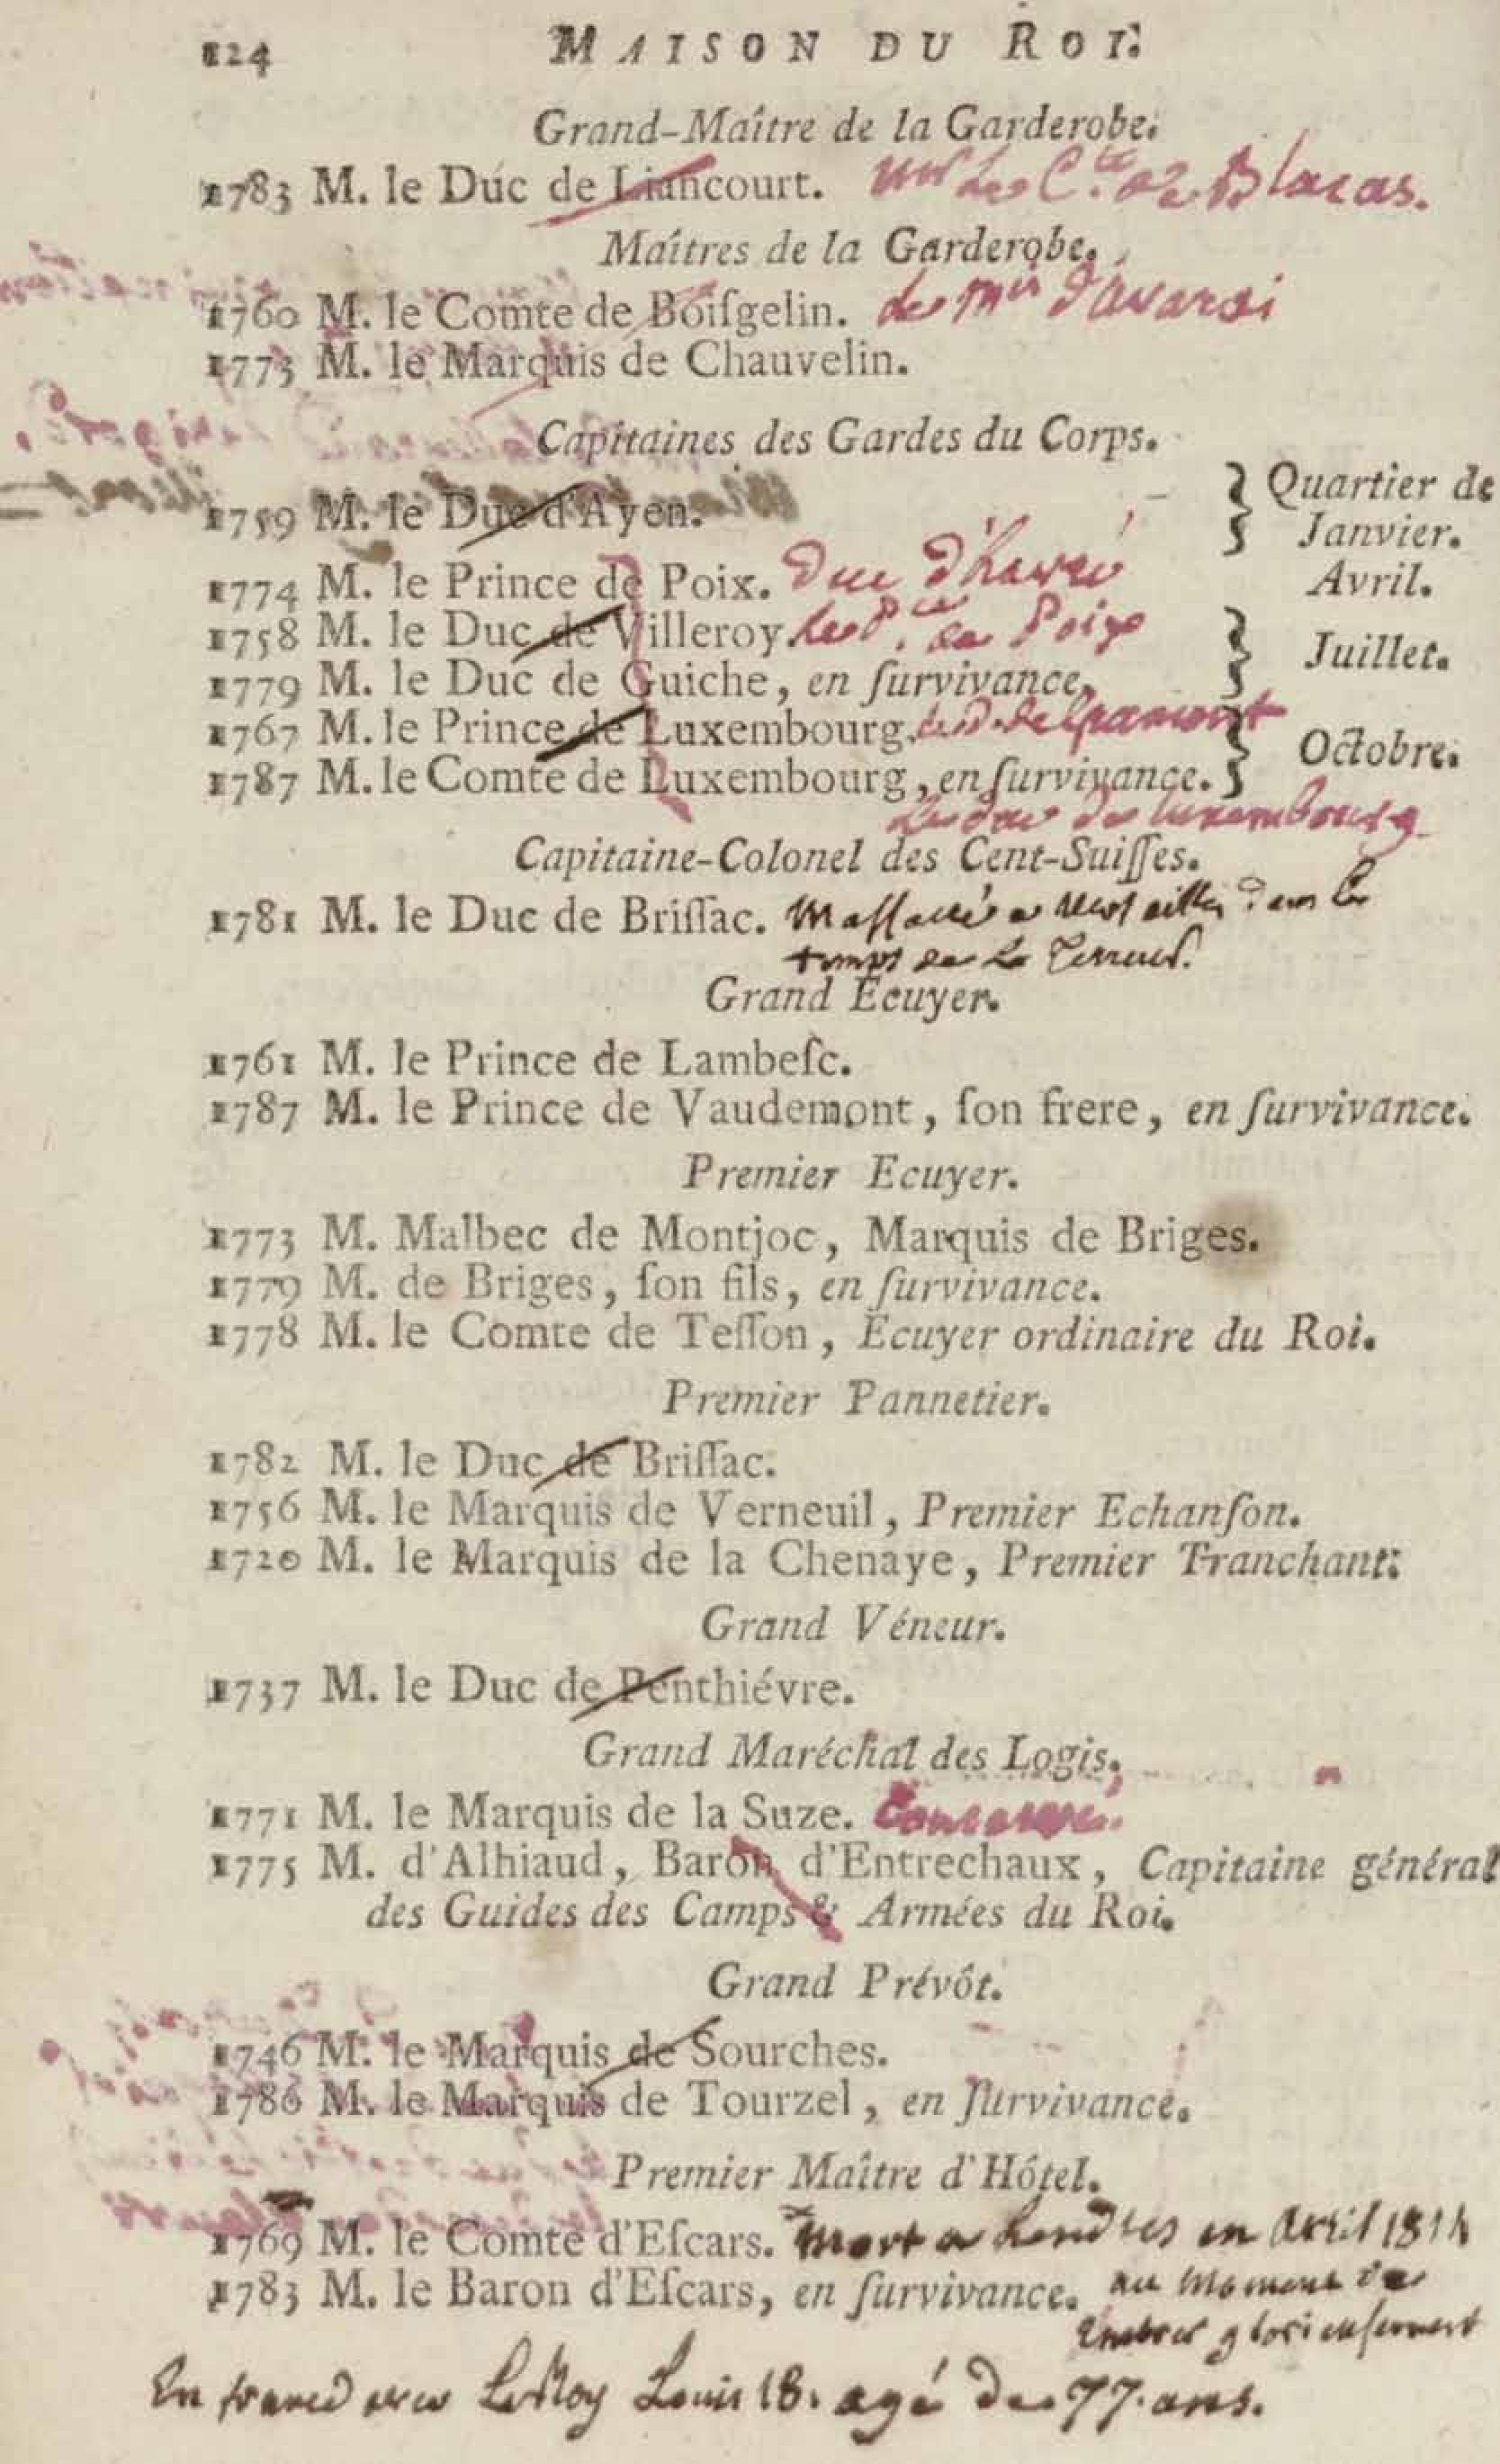 124 MAISON DU ROI.
Grand-Maître de la Garderobe.
1783 M. le Duc de Liancourt. Mr Le C.te de Blacas.
Maîtres de la Garderobe.
1760 M. le Comte de Boiſgelin. le Mis d'avarai
1773 M. le Marquis de Chauvelin.
Capitaines des Gardes du Corps.
1759 M. le Duc d'Ayen. } Quartier de
Janvier.
1774 M. le Prince de Poix. Duc d'havré Avril.
1758 M. le Duc de Villeroy. Le P.ce de Poix } Juillet.
1779 M. le Duc de Guiche, en ſurvivance.
1767 M. le Prince de Luxembourg. le d. de Gramont } Octobre.
1787 M. le Comte de Luxembourg, en ſurvivance.
Le duc de luxembourg
Capitaine-Colonel des Cent-Suiſſes.
1781 M. le Duc de Briſſac. Maſſacré a Verſailles dans le
temps de La Terreur.
Grand Ecuyer.
1761 M. le Prince de Lambeſc.
1787 M. le Prince de Vaudemont, ſon frere, en ſurvivance.
Premier Ecuyer.
1773 M. Malbec de Montjoc, Marquis de Briges.
1779 M. de Briges, ſon fils, en ſurvivance.
1778 M. le Comte de Teſſon, Ecuyer ordinaire du Roi.
Premier Pannetier.
1782 M. le Duc de Briſſac.
1756 M. le Marquis de Verneuil, Premier Echanſon.
1720 M. le Marquis de la Chenaye, Premier Tranchant.
Grand Véneur.
1737 M. le Duc de Penthiévre.
Grand Maréchal des Logis.
1771 M. le Marquis de la Suze. Conservé.
1775 M. d'Alhiaud, Baron d'Entrechaux, Capitaine général
des Guides des Camps & Armées du Roi.
Grand Prévôt.
1746 M. le Marquis de Sourches.
1786 M. le Marquis de Tourzel, en ſurvivance.
Premier Maître d'Hôtel.
1769 M. le Comte d'Eſcars. Mort a Londres en Avril 1814
1783 M. le Baron d'Eſcars, en ſurvivance. au moment de
rentrer glorieuſement
En france avec Le Roy Louis 18. agé de 77. ans.